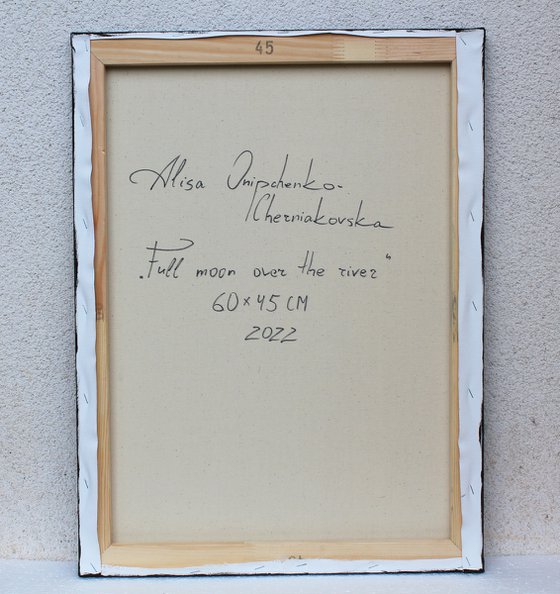 45
Alisa Onipchenko-
Cherniakovska
„Full moon over the river“
60×45 CM
2022